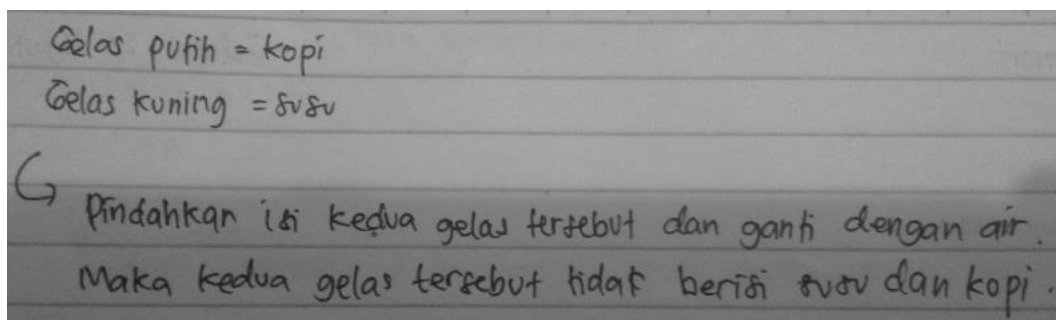 Gelas putih = kopi
Gelas kuning = susu
Pindahkan isi kedua gelas tersebut dan ganti dengan air.
Maka kedua gelas tersebut tidak berisi susu dan kopi.